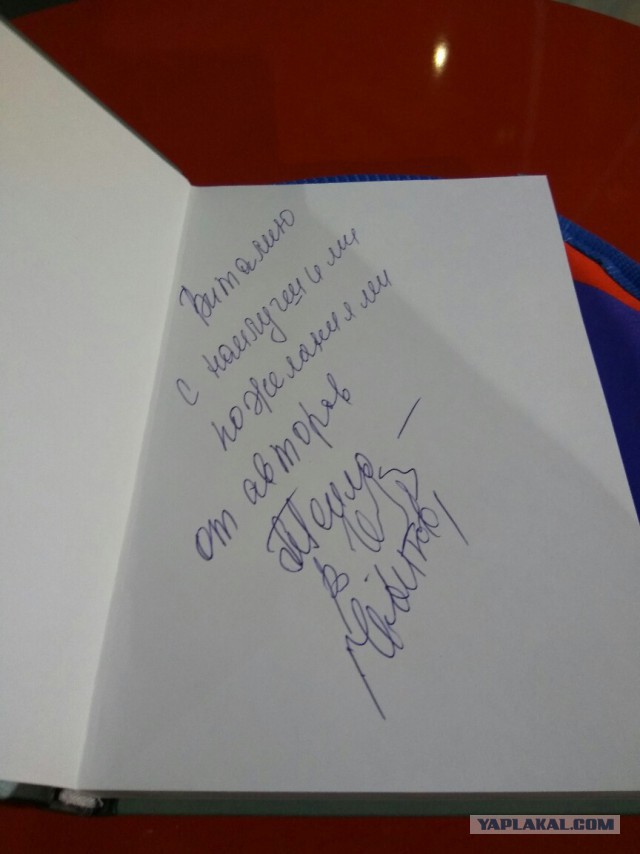 Виталию
с наилучшими
пожеланиями
от авторов
YAPLAKAL.COM